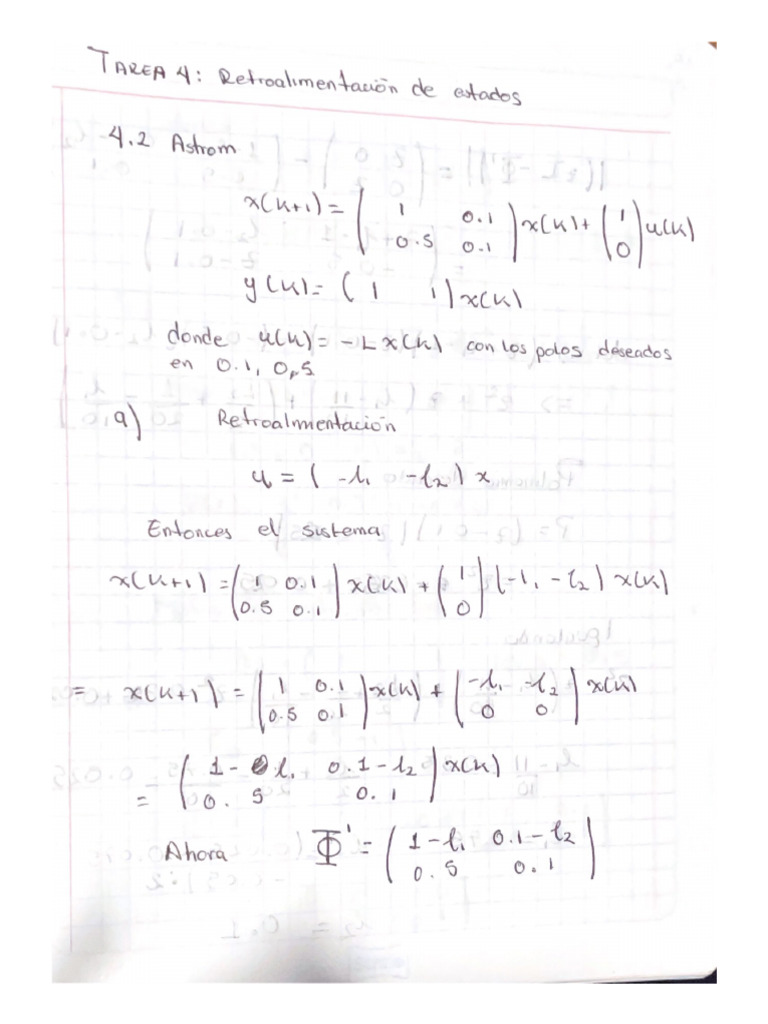 TAREA 4: Retroalimentación de estados
4.2 Astrom
x(k+1) = (1 0.1; 0.5 0.1) x(k) + (1; 0) u(k)
y(k) = (1 1) x(k)
donde u(k) = -L x(k) con los polos deseados
en 0.1, 0,5
a) Retroalimentación
u = (-l₁ -l₂) x
Entonces el sistema
x(k+1) = (1 0.1; 0.5 0.1) x(k) + (1; 0) (-l₁ -l₂) x(k)
= x(k+1) = (1 0.1; 0.5 0.1) x(k) + (-l₁ -l₂; 0 0) x(k)
= (1-l₁ 0.1-l₂; 0.5 0.1) x(k)
Ahora Φ' = (1-l₁ 0.1-l₂; 0.5 0.1)